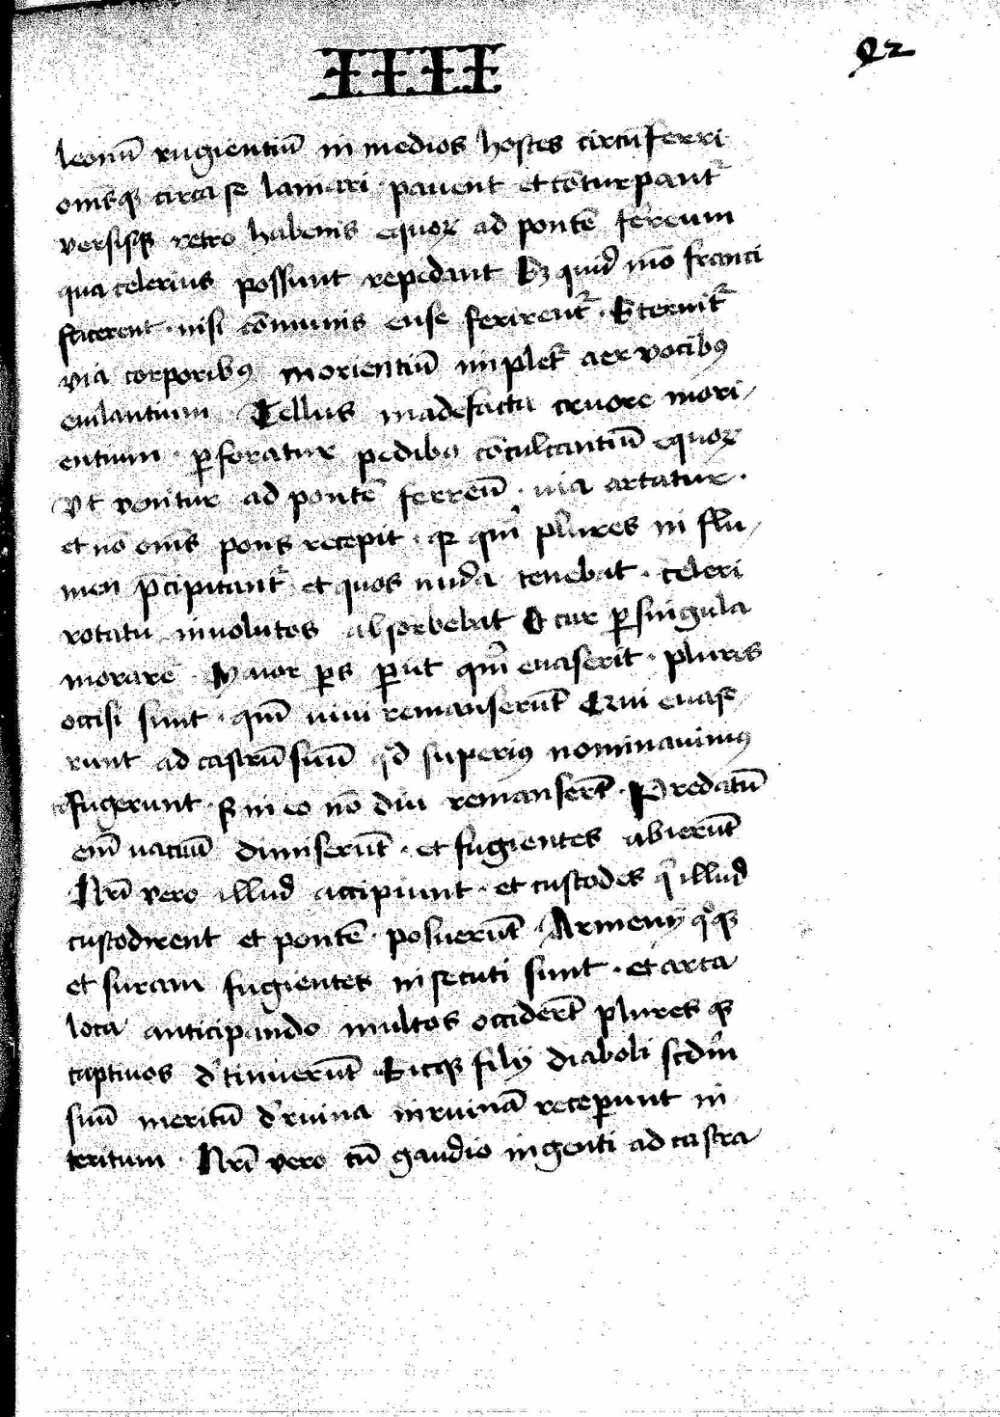 IIII
92
leonū rugientiū in medios hostes circūferri
om̄sq̧ circa se laniari · pauent et cōturpant᷑
versisq̧ retro habenis equoꝝ ad pontē ferreum
qua celerius possunt repedant Sꝫ quid mō franci
facerent · nisi cōmunis ense ferirent᷑ · Sternit᷑
via corporibꝯ morientiū implet᷑ aer vocibꝯ
eiulantium Tellus madefacta cruore mori/
entium · ꝑforatur pedibꝯ cōculcantiū equoꝝ
Vt venitur ad pontē ferreū · uia artatur ·
et nō om̄s pons recepit · qm̄ plures in flu/
men p̄cipitant᷑ · et quos unda tenebat · celeri
rotatu inuolutos absorbebat Et cur ꝑ singula
morarer · Maior ps ꝑiit qm̄ euaserit · plures
occisi sunt · qm̄ uiui remanserunt Qui euase
runt ad castrū suū qd̄ superiꝯ nominauimꝯ
cōfugerunt · Sꝫ in eo nō diu remanserūt · Predatū
em̄ vacuū dimiserūt · et fugientes abierūt
Nr̄i vero illud accipiunt · et custodes q̄ illud
custodirent et pontē · posuerūt · Armenij qͦq̧
et suriani fugientes insecuti sunt · et arta
loca anticipando multos occiderūt plures q̧
captiuos detinuerūt Sicq̧ filij diaboli scdm̄
suū meritū de ruina in ruinā receperunt in
teritum · Nr̄i vero cū gaudio ingenti ad castra